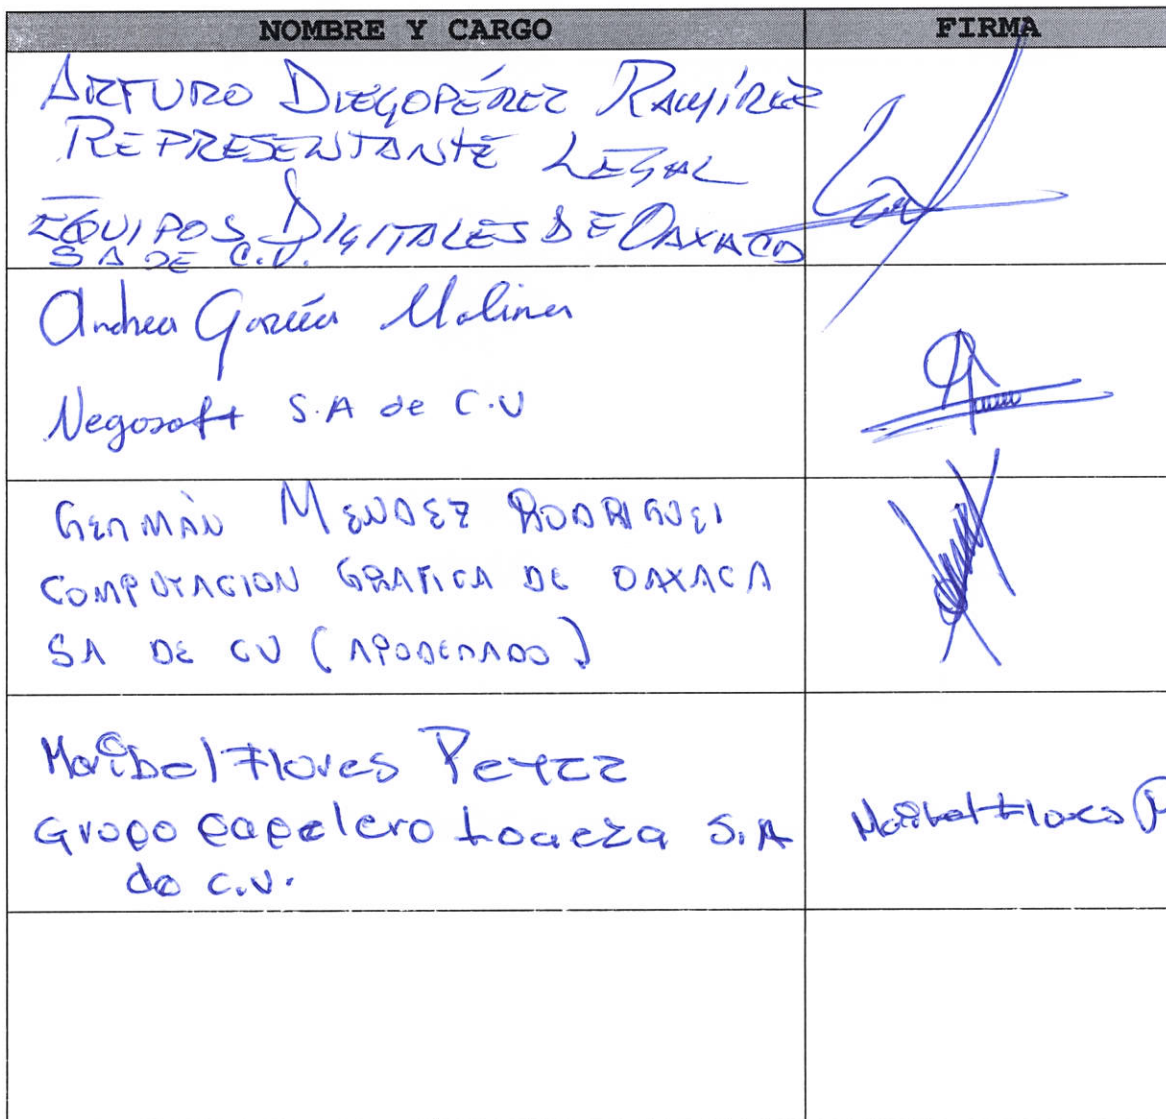 NOMBRE Y CARGO FIRMA
ARTURO DIEGOPÉREZ RAMÍREZ
REPRESENTANTE LEGAL
EQUIPOS DIGITALES DE OAXACA
SA DE C.V.
Andrea García Molina
Negosoft S.A de C.V
GERMÁN MENDEZ RODRIGUEZ
COMPUTACION GRAFICA DE OAXACA
SA DE CV (APODERADO)
Maribel Flores Perez
Grupo papelero Loaeza S.A Maribel Flores P
de C.V.